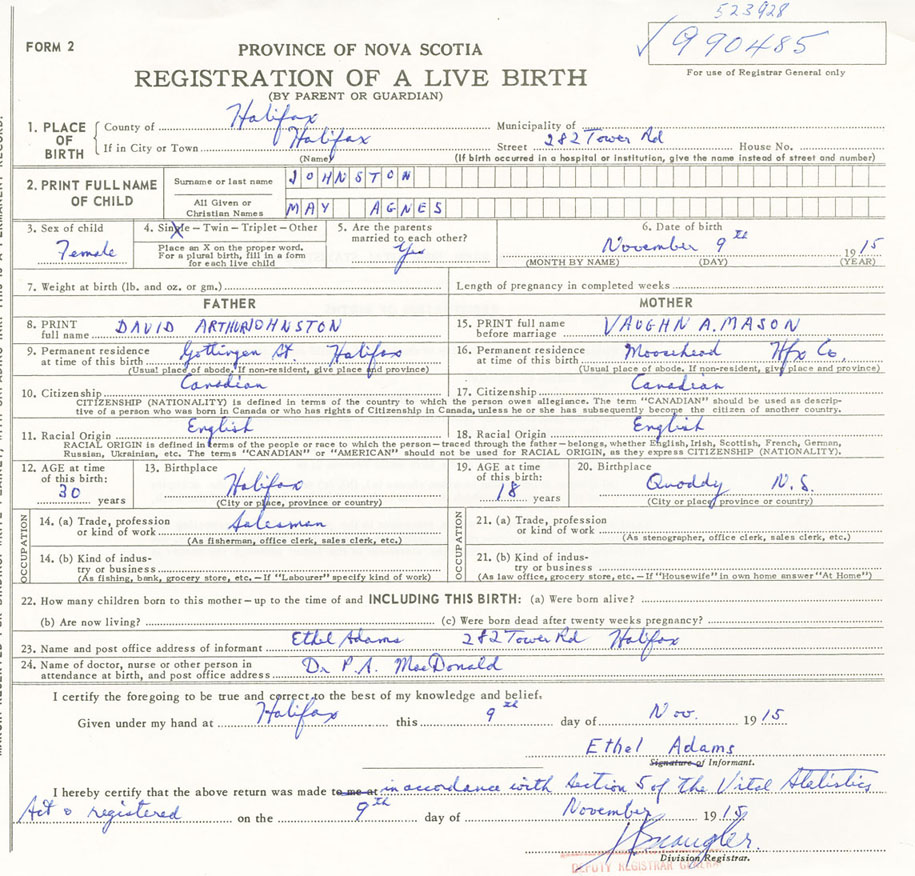 523928
FORM 2
✓990485
PROVINCE OF NOVA SCOTIA
For use of Registrar General only
REGISTRATION OF A LIVE BIRTH
(BY PARENT OR GUARDIAN)
1. PLACE OF BIRTH
County of Halifax Municipality of
If in City or Town Halifax Street 282 Tower Rd House No.
(Name) (If birth occurred in a hospital or institution, give the name instead of street and number)
2. PRINT FULL NAME OF CHILD
Surname or last name JOHNSTON
All Given or Christian Names MAY AGNES
3. Sex of child
Female
4. Single – Twin – Triplet – Other
Place an X on the proper word.
For a plural birth, fill in a form
for each live child
5. Are the parents
married to each other?
Yes
6. Date of birth
November 9th 1915
(MONTH BY NAME) (DAY) (YEAR)
7. Weight at birth (lb. and oz. or gm.) Length of pregnancy in completed weeks
FATHER
8. PRINT
full name DAVID ARTHUR JOHNSTON
9. Permanent residence
at time of this birth Gottingen St. Halifax
(Usual place of abode. If non-resident, give place and province)
MOTHER
15. PRINT full name
before marriage VAUGHN A. MASON
16. Permanent residence
at time of this birth Moosehead Hfx Co.
(Usual place of abode. If non-resident, give place and province)
10. Citizenship Canadian 17. Citizenship Canadian
CITIZENSHIP (NATIONALITY) is defined in terms of the country to which the person owes allegiance. The term "CANADIAN" should be used as descrip-
tive of a person who was born in Canada or who has rights of Citizenship in Canada, unless he or she has subsequently become the citizen of another country.
11. Racial Origin English 18. Racial Origin English
RACIAL ORIGIN is defined in terms of the people or race to which the person – traced through the father – belongs, whether English, Irish, Scottish, French, German,
Russian, Ukrainian, etc. The terms "CANADIAN" or "AMERICAN" should not be used for RACIAL ORIGIN, as they express CITIZENSHIP (NATIONALITY).
12. AGE at time
of this birth:
30 years
13. Birthplace
Halifax
(City or place, province or country)
19. AGE at time
of this birth:
18 years
20. Birthplace
Quoddy N.S.
(City or place, province or country)
OCCUPATION
14. (a) Trade, profession
or kind of work Salesman
(As fisherman, office clerk, sales clerk, etc.)
14. (b) Kind of indus-
try or business
(As fishing, bank, grocery store, etc. – If "Labourer" specify kind of work)
OCCUPATION
21. (a) Trade, profession
or kind of work
(As stenographer, office clerk, sales clerk, etc.)
21. (b) Kind of indus-
try or business
(As law office, grocery store, etc. – If "Housewife" in own home answer "At Home")
22. How many children born to this mother – up to the time of and INCLUDING THIS BIRTH: (a) Were born alive?
(b) Are now living? (c) Were born dead after twenty weeks pregnancy?
23. Name and post office address of informant Ethel Adams 282 Tower Rd Halifax
24. Name of doctor, nurse or other person in
attendance at birth, and post office address Dr P.A. MacDonald
I certify the foregoing to be true and correct to the best of my knowledge and belief.
Given under my hand at Halifax this 9th day of Nov. 1915
Ethel Adams
Signature of Informant.
I hereby certify that the above return was made to me at in accordance with Section 5 of the Vital Statistics
Act & registered on the 9th day of November 1915
Division Registrar.
DEPUTY REGISTRAR GENERAL